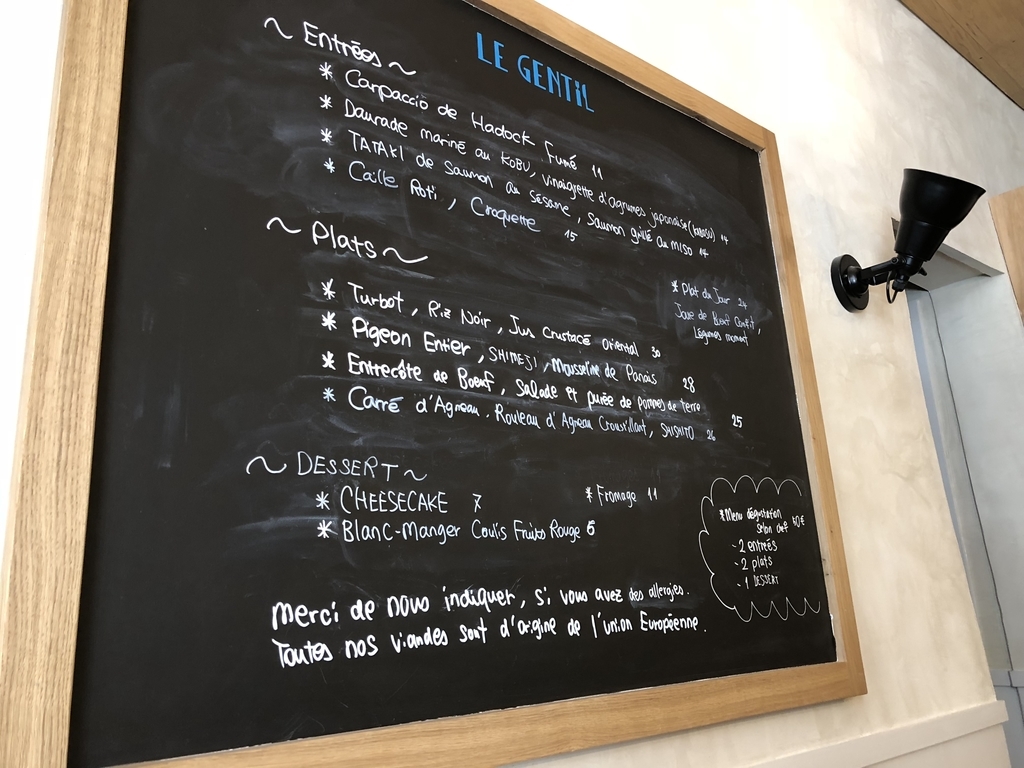 LE GENTIL
~ Entrées ~
* Carpaccio de Hadock fumé 11
* Daurade mariné au KOBU, vinaigrette d'agrumes japonaise 14
* TATAKI de Saumon au sésame, Saumon grillé au MISO 14
* Caille Roti, Croquette 15
~ Plats ~
* Plat du Jour 24
Joue de Bœuf Confit,
Légumes moment
* Turbot, Riz Noir, Jus Crustacé Oriental 30
* Pigeon Entier, SHIMEJI, Mousseline de Panais 28
* Entrecôte de Bœuf, Salade et purée de pommes de terre 25
* Carré d'Agneau, Rouleau d'Agneau Croustillant, SHISHITO 26
~ DESSERT ~
* CHEESECAKE 7
* Fromage 11
* Blanc-Manger Coulis Fruits Rouge 6
* Menu dégustation
Selon chef 40€
- 2 entrées
- 2 plats
- 1 DESSERT
Merci de nous indiquer, si vous avez des allergies.
Toutes nos viandes sont d'origine de l'union Européenne.